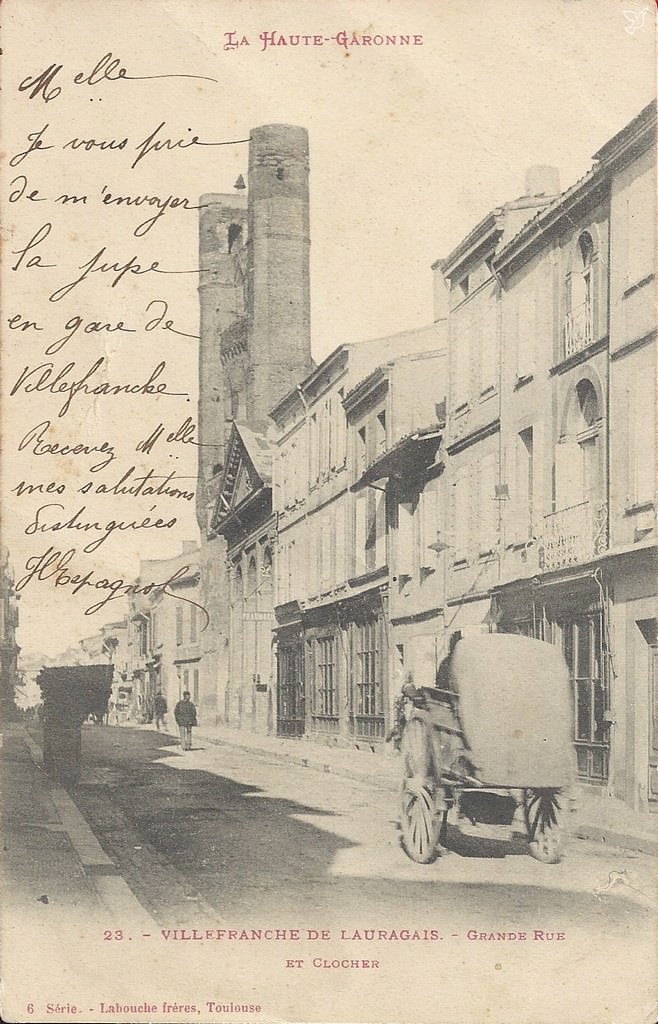 La Haute-Garonne
Melle
Je vous prie
de m'envoyer
la jupe
en gare de
Villefranche.
Recevez Melle
mes salutations
distinguées
HEspagnol
23. - VILLEFRANCHE DE LAURAGAIS. - Grande Rue
et Clocher
6 Série. - Labouche frères, Toulouse